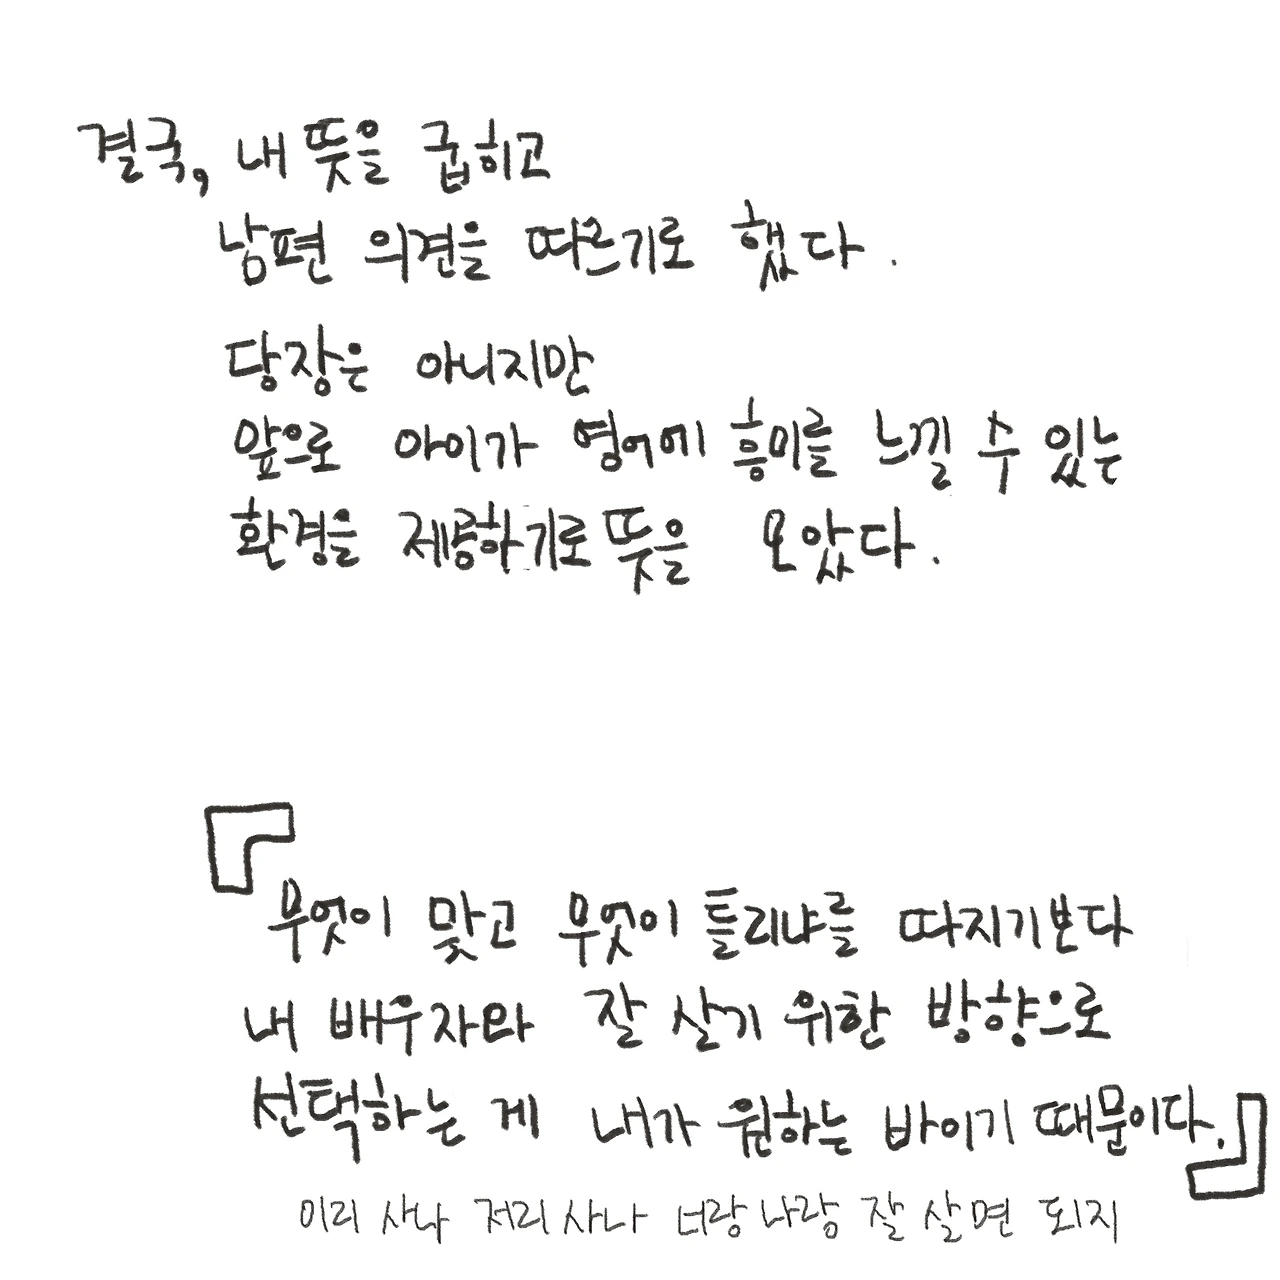 결국, 내 뜻을 굽히고
남편 의견을 따르기로 했다.
당장은 아니지만
앞으로 아이가 영어에 흥미를 느낄 수 있는
환경을 제공하기로 뜻을 모았다.
『무엇이 맞고 무엇이 틀리냐를 따지기보다
내 배우자와 잘 살기 위한 방향으로
선택하는 게 내가 원하는 바이기 때문이다.』
이리 사나 저리 사나 너랑 나랑 잘 살면 되지